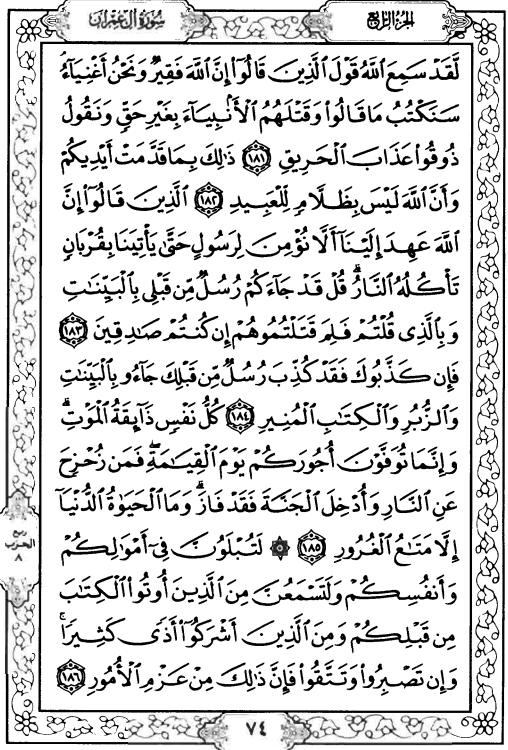 سورة آل عمران
الجزء الرابع
لَّقَدْ سَمِعَ اللَّهُ قَوْلَ الَّذِينَ قَالُوا إِنَّ اللَّهَ فَقِيرٌ وَنَحْنُ أَغْنِيَاءُ
سَنَكْتُبُ مَا قَالُوا وَقَتْلَهُمُ الْأَنبِيَاءَ بِغَيْرِ حَقٍّ وَنَقُولُ
ذُوقُوا عَذَابَ الْحَرِيقِ ١٨١ ذَٰلِكَ بِمَا قَدَّمَتْ أَيْدِيكُمْ
وَأَنَّ اللَّهَ لَيْسَ بِظَلَّامٍ لِّلْعَبِيدِ ١٨٢ الَّذِينَ قَالُوا إِنَّ
اللَّهَ عَهِدَ إِلَيْنَا أَلَّا نُؤْمِنَ لِرَسُولٍ حَتَّىٰ يَأْتِيَنَا بِقُرْبَانٍ
تَأْكُلُهُ النَّارُ ۗ قُلْ قَدْ جَاءَكُمْ رُسُلٌ مِّن قَبْلِي بِالْبَيِّنَاتِ
وَبِالَّذِي قُلْتُمْ فَلِمَ قَتَلْتُمُوهُمْ إِن كُنتُمْ صَادِقِينَ ١٨٣
فَإِن كَذَّبُوكَ فَقَدْ كُذِّبَ رُسُلٌ مِّن قَبْلِكَ جَاءُو بِالْبَيِّنَاتِ
وَالزُّبُرِ وَالْكِتَابِ الْمُنِيرِ ١٨٤ كُلُّ نَفْسٍ ذَائِقَةُ الْمَوْتِ ۗ
وَإِنَّمَا تُوَفَّوْنَ أُجُورَكُمْ يَوْمَ الْقِيَامَةِ ۖ فَمَن زُحْزِحَ
عَنِ النَّارِ وَأُدْخِلَ الْجَنَّةَ فَقَدْ فَازَ ۗ وَمَا الْحَيَوٰةُ الدُّنْيَا
إِلَّا مَتَاعُ الْغُرُورِ ١٨٥ ۞ لَتُبْلَوُنَّ فِي أَمْوَالِكُمْ
وَأَنفُسِكُمْ وَلَتَسْمَعُنَّ مِنَ الَّذِينَ أُوتُوا الْكِتَابَ
مِن قَبْلِكُمْ وَمِنَ الَّذِينَ أَشْرَكُوا أَذًى كَثِيرًا ۚ
وَإِن تَصْبِرُوا وَتَتَّقُوا فَإِنَّ ذَٰلِكَ مِنْ عَزْمِ الْأُمُورِ ١٨٦
ربع
الحزب
٨
٧٤